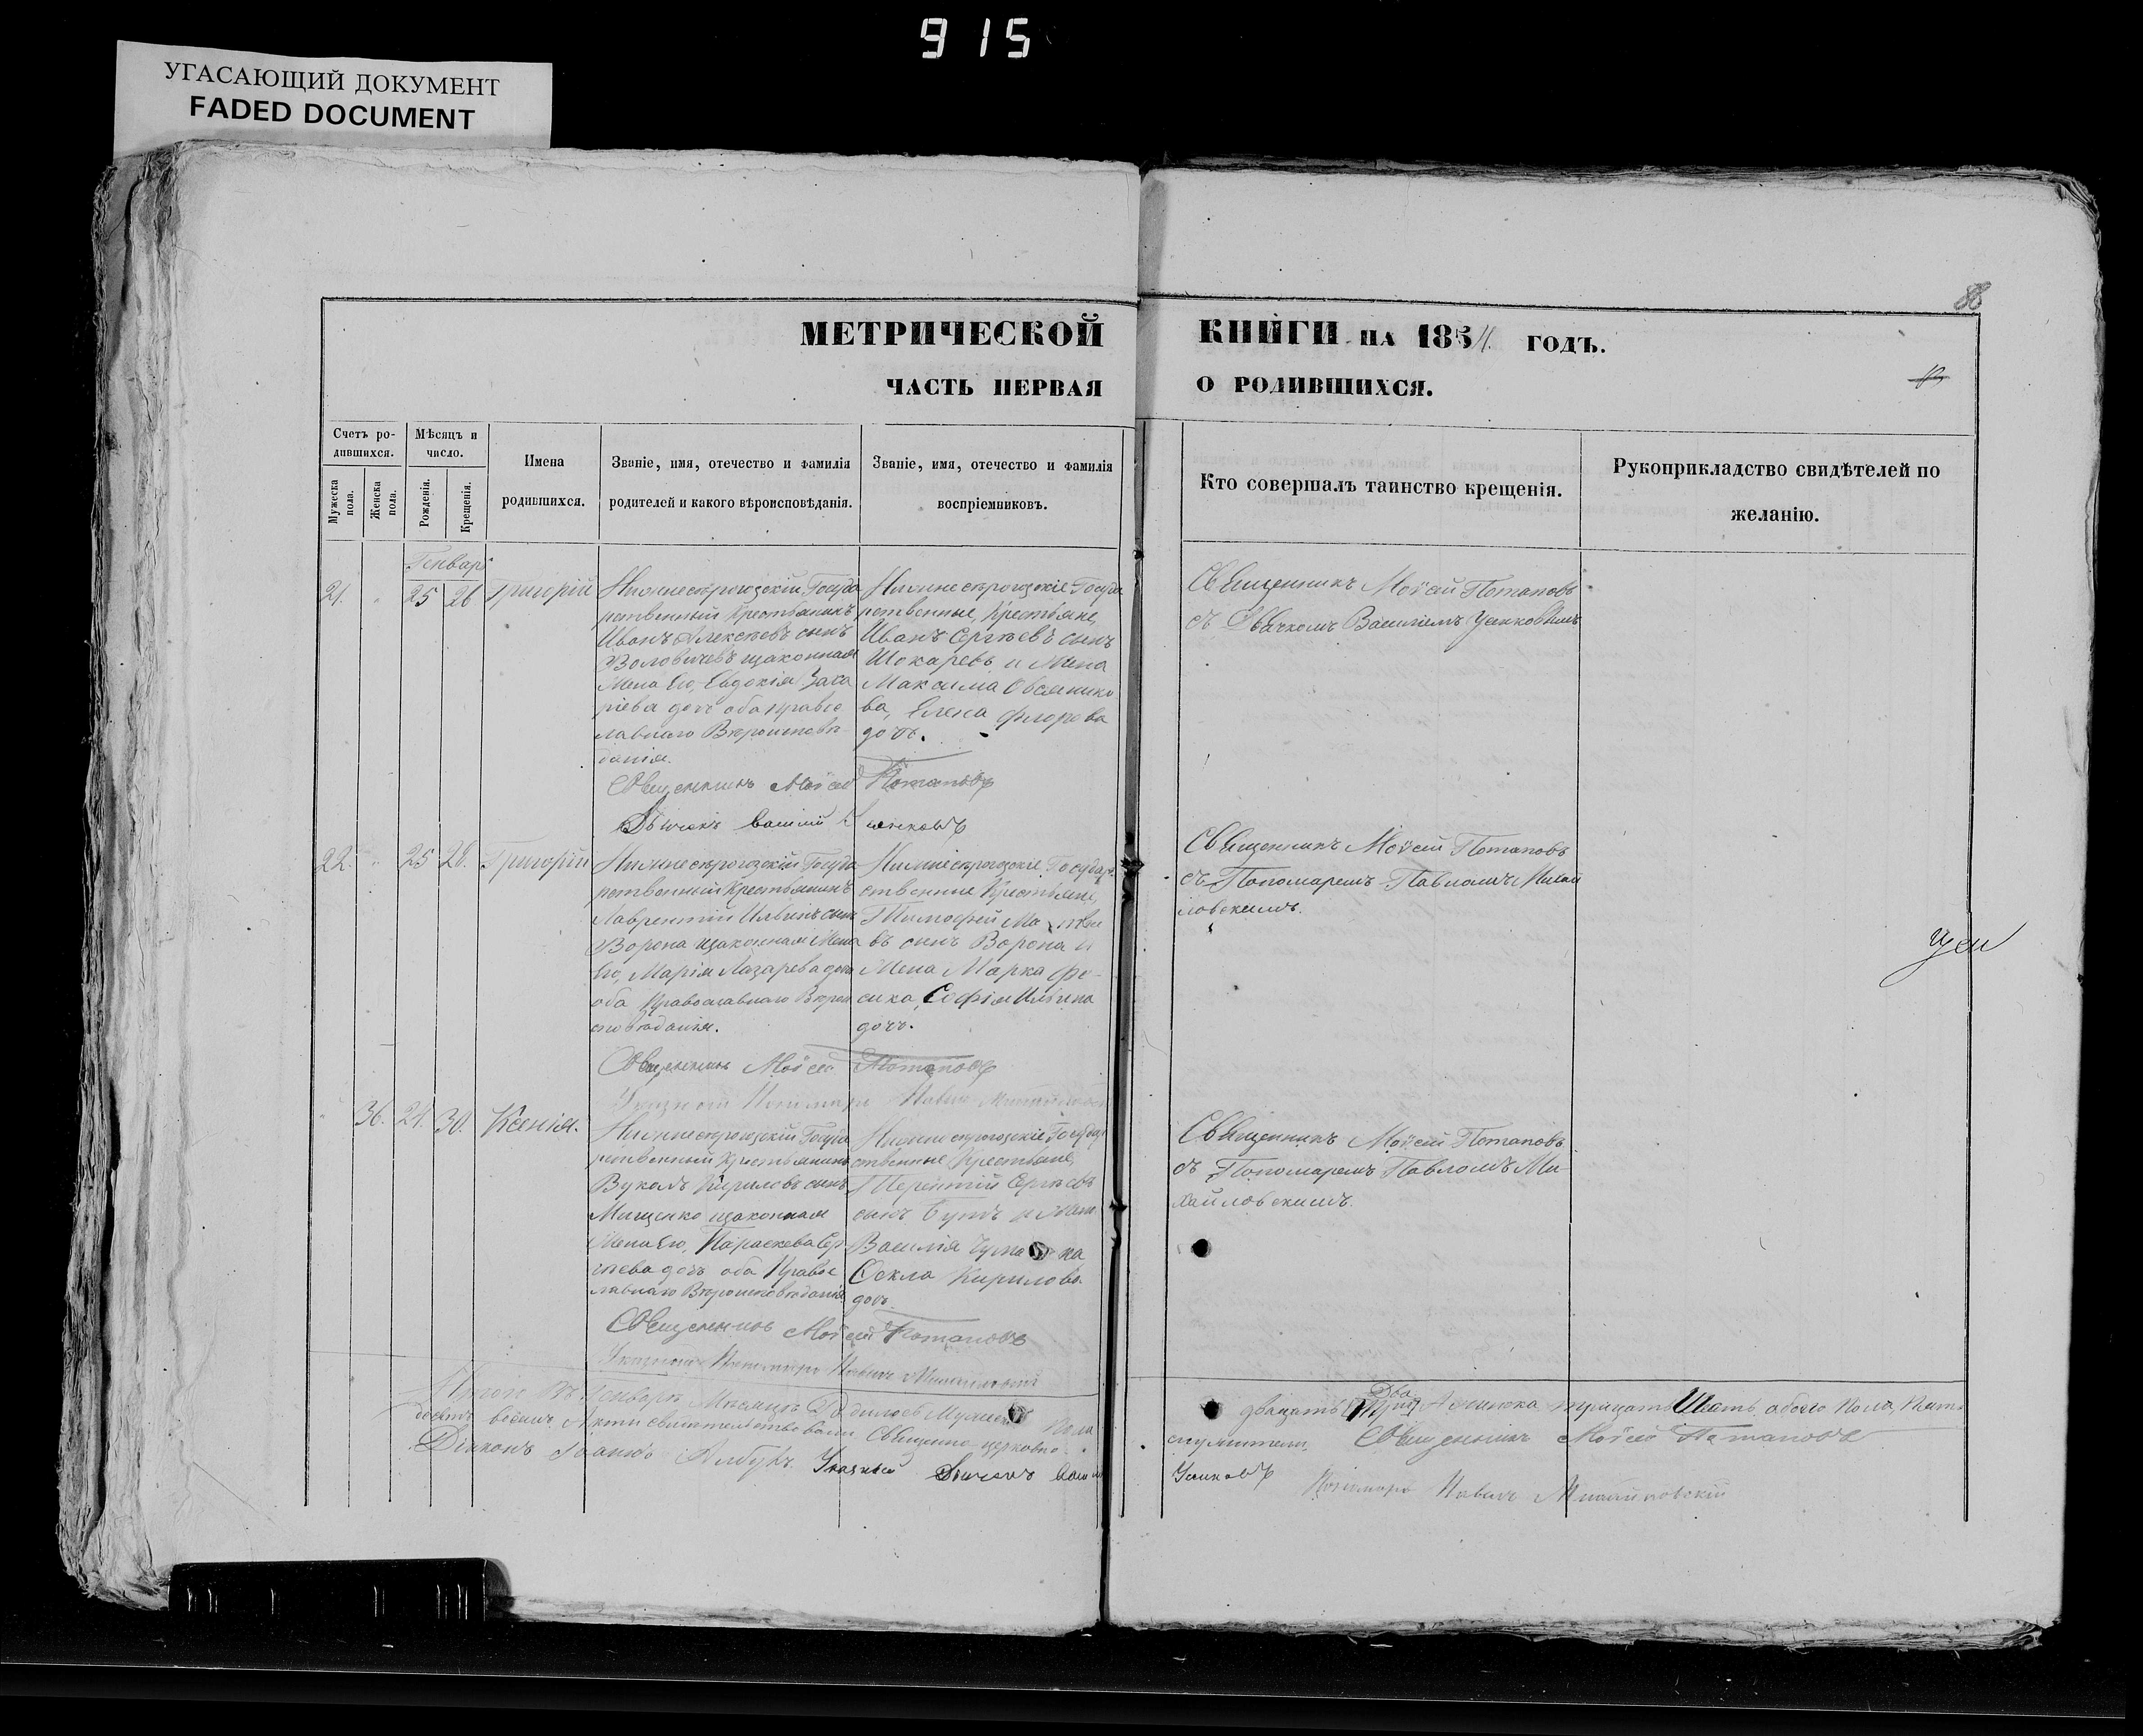 915
УГАСАЮЩИЙ ДОКУМЕНТ
FADED DOCUMENT
МЕТРИЧЕСКОЙ
КНИГИ НА 1854. ГОДЪ.
ЧАСТЬ ПЕРВАЯ
О РОДИВШИХСЯ.
Счетъ ро-
дившихся.
Мужеска
пола.
Женска
пола.
Мѣсяцъ и
число.
Рожденія.
Крещенія.
Имена
родившихся.
Званіе, имя, отечество и фамилія
родителей и какого вѣроисповѣданія.
Званіе, имя, отечество и фамилія
воспріемниковъ.
Кто совершалъ таинство крещенія.
Рукоприкладство свидѣтелей по
желанію.
Генварь
21. 25 26 Григорій
Нижнесѣрогозскій Госуда
рственный Крестьянинъ
Иванъ Алексѣевъ сынъ
Воловичевъ изаконная
Жена Его, Евдокія Заха
ріева дочь оба правос
лавнаго Вѣроисповѣ-
данія.
Нижнесѣрогозскіе Госуда
рственные, Крестьяне,
Иванъ Сергѣевъ сынъ
Шокаревъ и Жена
Максима Овсянико
ва, Елена Флорова
дочь.
Священникъ Моѵсей Потаповъ
съ Дьячкомъ Василіемъ Усиковымъ
Священникъ Моѵсей Потаповъ
Дьячекъ Василий Усиковъ
22. 25 28. Григорій
Нижнесѣрогозскій Госуда
рственный Крестьянинъ
Лаврентій Ильинъ сынъ
Ворона изаконная Жена
Его, Марія Лазарева дочь
оба Православнаго Вѣрои
сповѣданія.
Нижнесѣрогозскіе Государ-
ственные Крестьяне,
Тимофей Матвѣе
въ сынъ Ворона и
Жена Марка Фе-
сика, Софія Ильина
дочь.
Священникъ Моѵсей Потаповъ
съ Пономаремъ Павломъ Михай
ловскимъ.
Священникъ Моѵсей Потаповъ
Указной Пономарь Павелъ Михайловскій
36. 24. 30. Ксенія.
Нижнесѣрогозскій Госуда
рственный Крестьянинъ
Вуколъ Кириловъ сынъ
Мищенко изаконная
Жена Его, Параскева Сер
гѣева дочь оба Правос
лавнаго Вѣроисповѣданія
Нижнесѣрогозскіе Государ
ственные Крестьяне,
Терентій Сергѣевъ
сынъ и Жена
Василія
Фекла Кирилова
дочь.
Священникъ Моѵсей Потаповъ
съ Пономаремъ Павломъ Ми-
хайловскимъ.
Священникъ Моѵсей Потаповъ
Указной Пономарь Павелъ Михайловскій
Итого Въ Генварѣ Мѣсяцѣ Родилось Мужеска Пола
двадцать Два Женска тридцать Шесть обоего Пола, Пять
десятъ восемь. Акти свидѣтельствовали Священно-церковно-
служители. Священникъ Моѵсей Потаповъ
Діаконъ Іоаннъ Указный Дьячекъ Васил
Усиковъ
Пономарь Павелъ Михайловскій